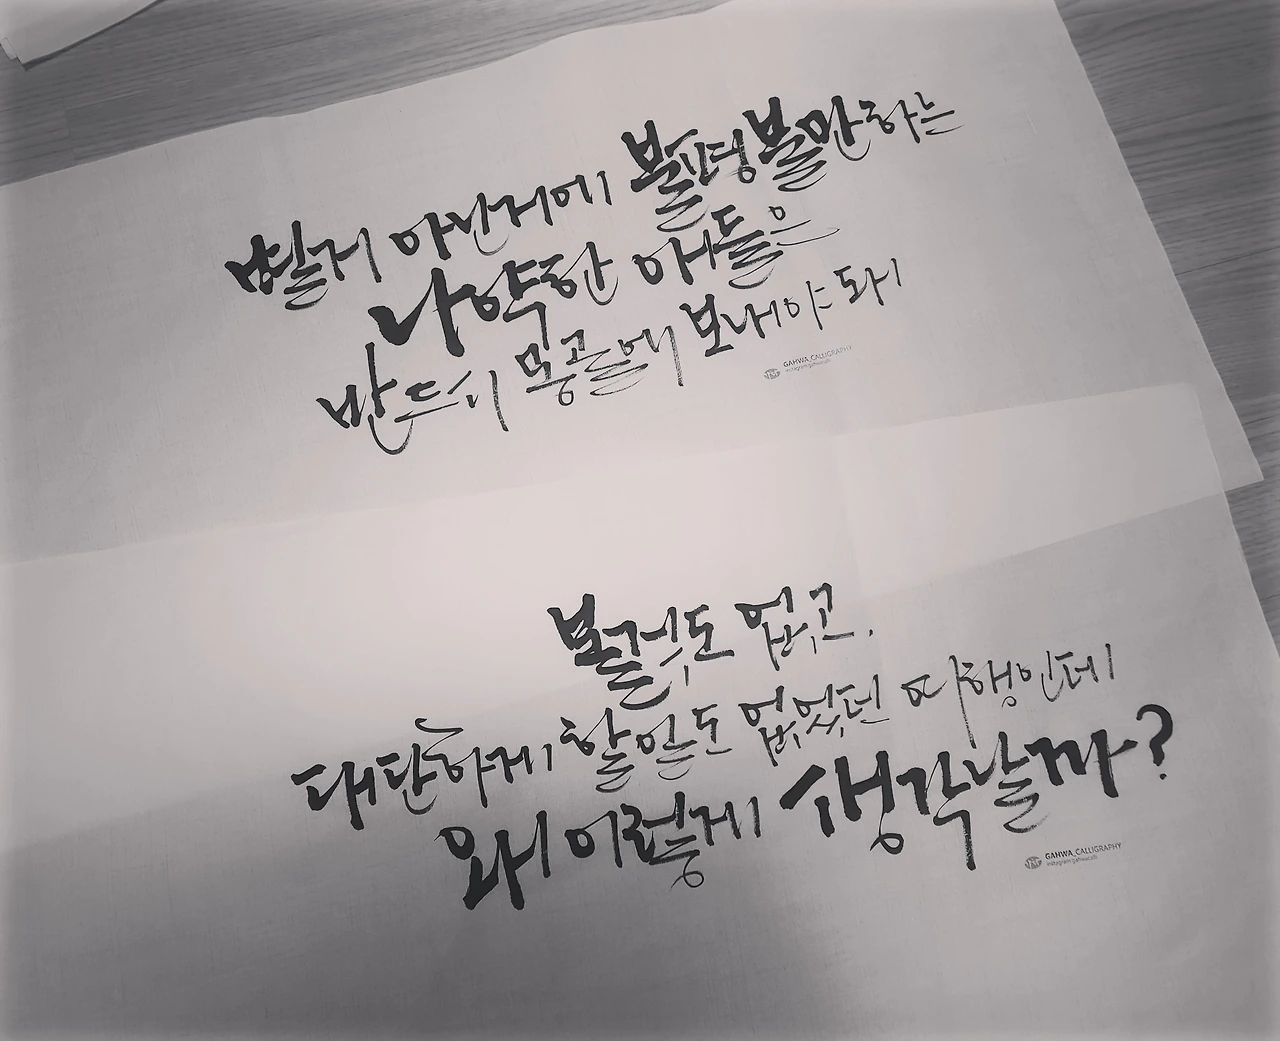 별거 아닌거에 불평불만하는
나약한 애들은
반드시 몽골에 보내야 돼
GAHWA_CALLIGRAPHY
instagram:gahwacalli
볼것도 없고,
대단하게 할일도 없었던 여행인데
왜 이렇게 생각날까?
GAHWA_CALLIGRAPHY
instagram:gahwacalli